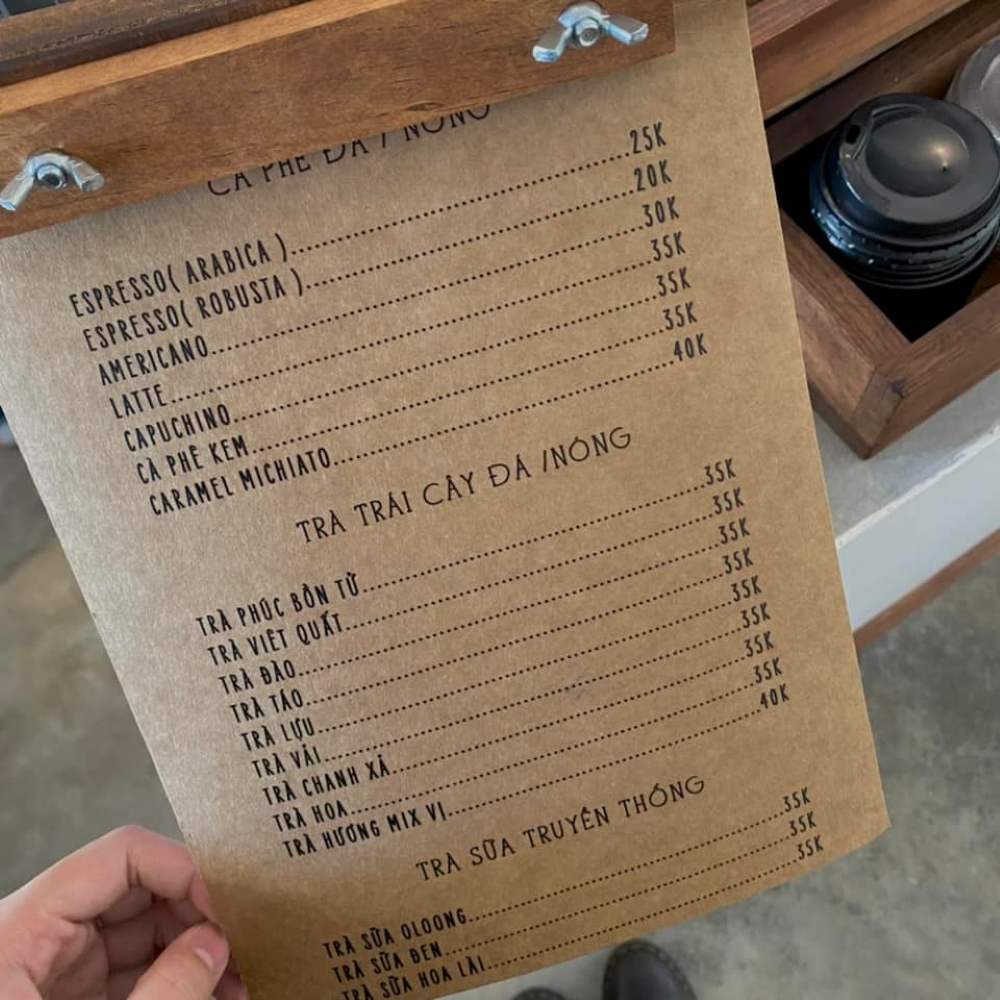 CÀ PHÊ ĐÁ / NÓNG
ESPRESSO( ARABICA )........25K
ESPRESSO( ROBUSTA )........20K
AMERICANO........30K
LATTE........35K
CAPUCHINO........35K
CÀ PHÊ KEM........35K
CARAMEL MICHIATO........40K
TRÀ TRÁI CÂY ĐÁ /NÓNG
TRÀ PHÚC BỒN TỬ........35K
TRÀ VIỆT QUẤT........35K
TRÀ ĐÀO........35K
TRÀ TÁO........35K
TRÀ LỰU........35K
TRÀ VẢI........35K
TRÀ CHANH XẢ........35K
TRÀ HOA........35K
TRÀ HƯƠNG MIX VỊ........40K
TRÀ SỮA TRUYỀN THỐNG
TRÀ SỮA OLOONG........35K
TRÀ SỮA ĐEN........35K
TRÀ SỮA HOA LÀI........35K